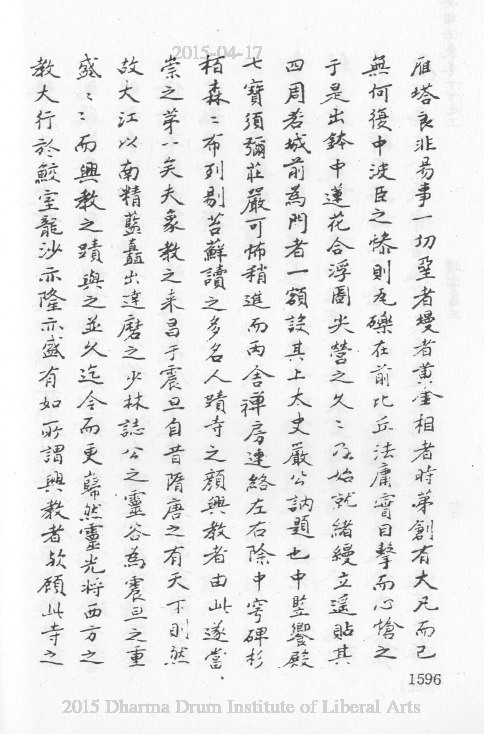 2015-04-17
雁塔良非易事一切堊者墁者黃金相者時第創有大凡而已
無何復中波臣之慘則瓦礫在前比丘法庸實目擊而心愴之
于是出鉢中蓮花合浮圖尖營之久〻乃始就緒縵立遥貼其
四周若城前為門者一額設其上太史嚴公訥題也中豎饗殿
七寶須彌莊嚴可怖稍進而丙舍禪房連絡左右除中穹碑杉
栢森〻布列剔苔蘚讀之多名人蹟寺之顏興教者由此遂當
崇之第一矣夫象教之来昌于震旦自昔隋唐之有天下則然
故大江以南精藍矗出達磨之少林誌公之靈谷為震旦之重
盛〻而興教之蹟與之並久迄今而更巋然靈光将西方之
教大行於鮫室龍沙亦隆亦盛有如所謂興教者欤顧此寺之
1596
2015 Dharma Drum Institute of Liberal Arts